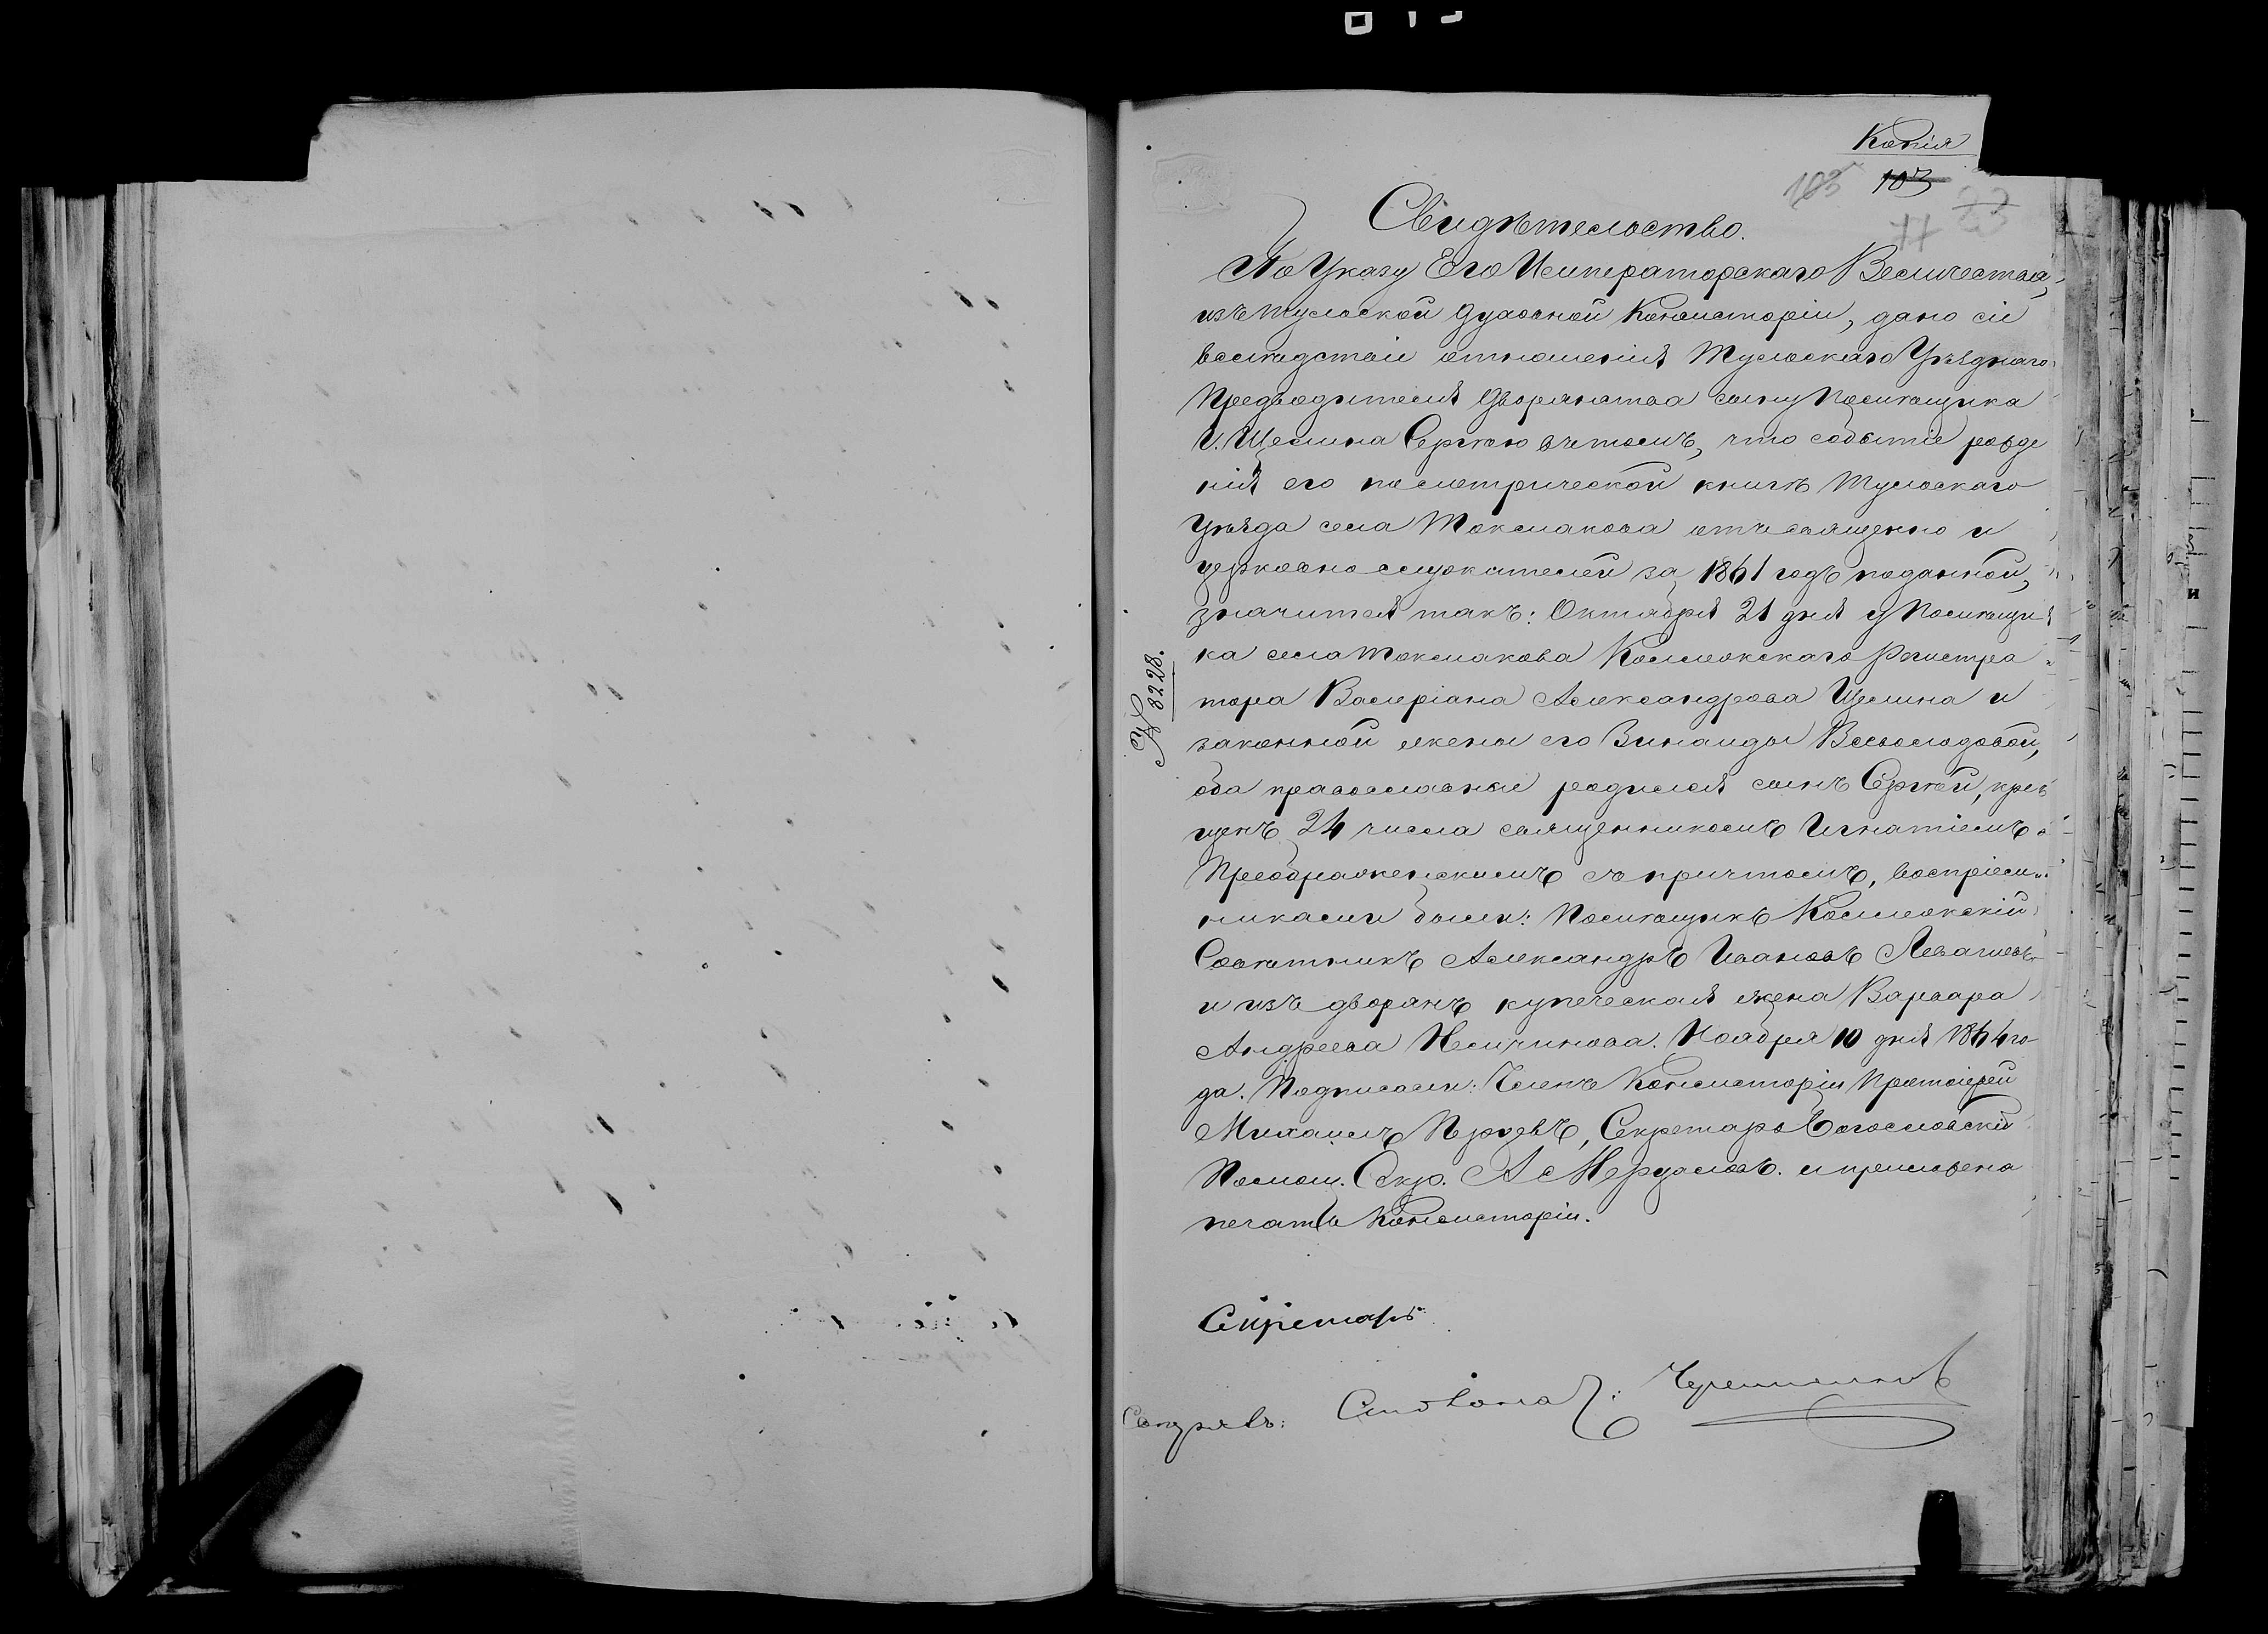 Копія
103 103
77 23
Свидѣтельство.
По Указу Его Императорскаго Величества,
изъ Тульской Духовной Консисторіи, дано сіе
вслѣдствіе отношенія Тульскаго Уѣзднаго
Предводителя Дворянства сыну Помѣщика
Г. Щелина Сергѣю въ томъ, что событіе рожде
нія его по метрической книгѣ Тульскаго
уѣзда села Токмакова отъ священно и
церковно служителей за 1861 годъ поданной,
значится такъ: Октября 21 дня у Помѣщи
ка села Токмакова Коллежскаго Регистра
тора Валеріана Александрова Щелина и
законной жены его Зинаиды Всеволодовой,
оба православные родился сынъ Сергѣй, кре
щенъ 24 числа священникомъ Игнатіемъ
Преображенскимъ съ причтомъ, воспріем
никами были: Помѣщикъ Коллежскій
Совѣтникъ Александръ Ивановъ Левашевъ
и изъ дворянъ купеческая жена Варвара
Андреева Немчинова. Ноября 10 дня 1864 го
да. Подписали: Членъ Консисторіи Протоіерей
Михаилъ Секретарь Богословскій
Помощ. Секр. А и приложена
печать Консисторіи.
№ 3228.
Секретарь